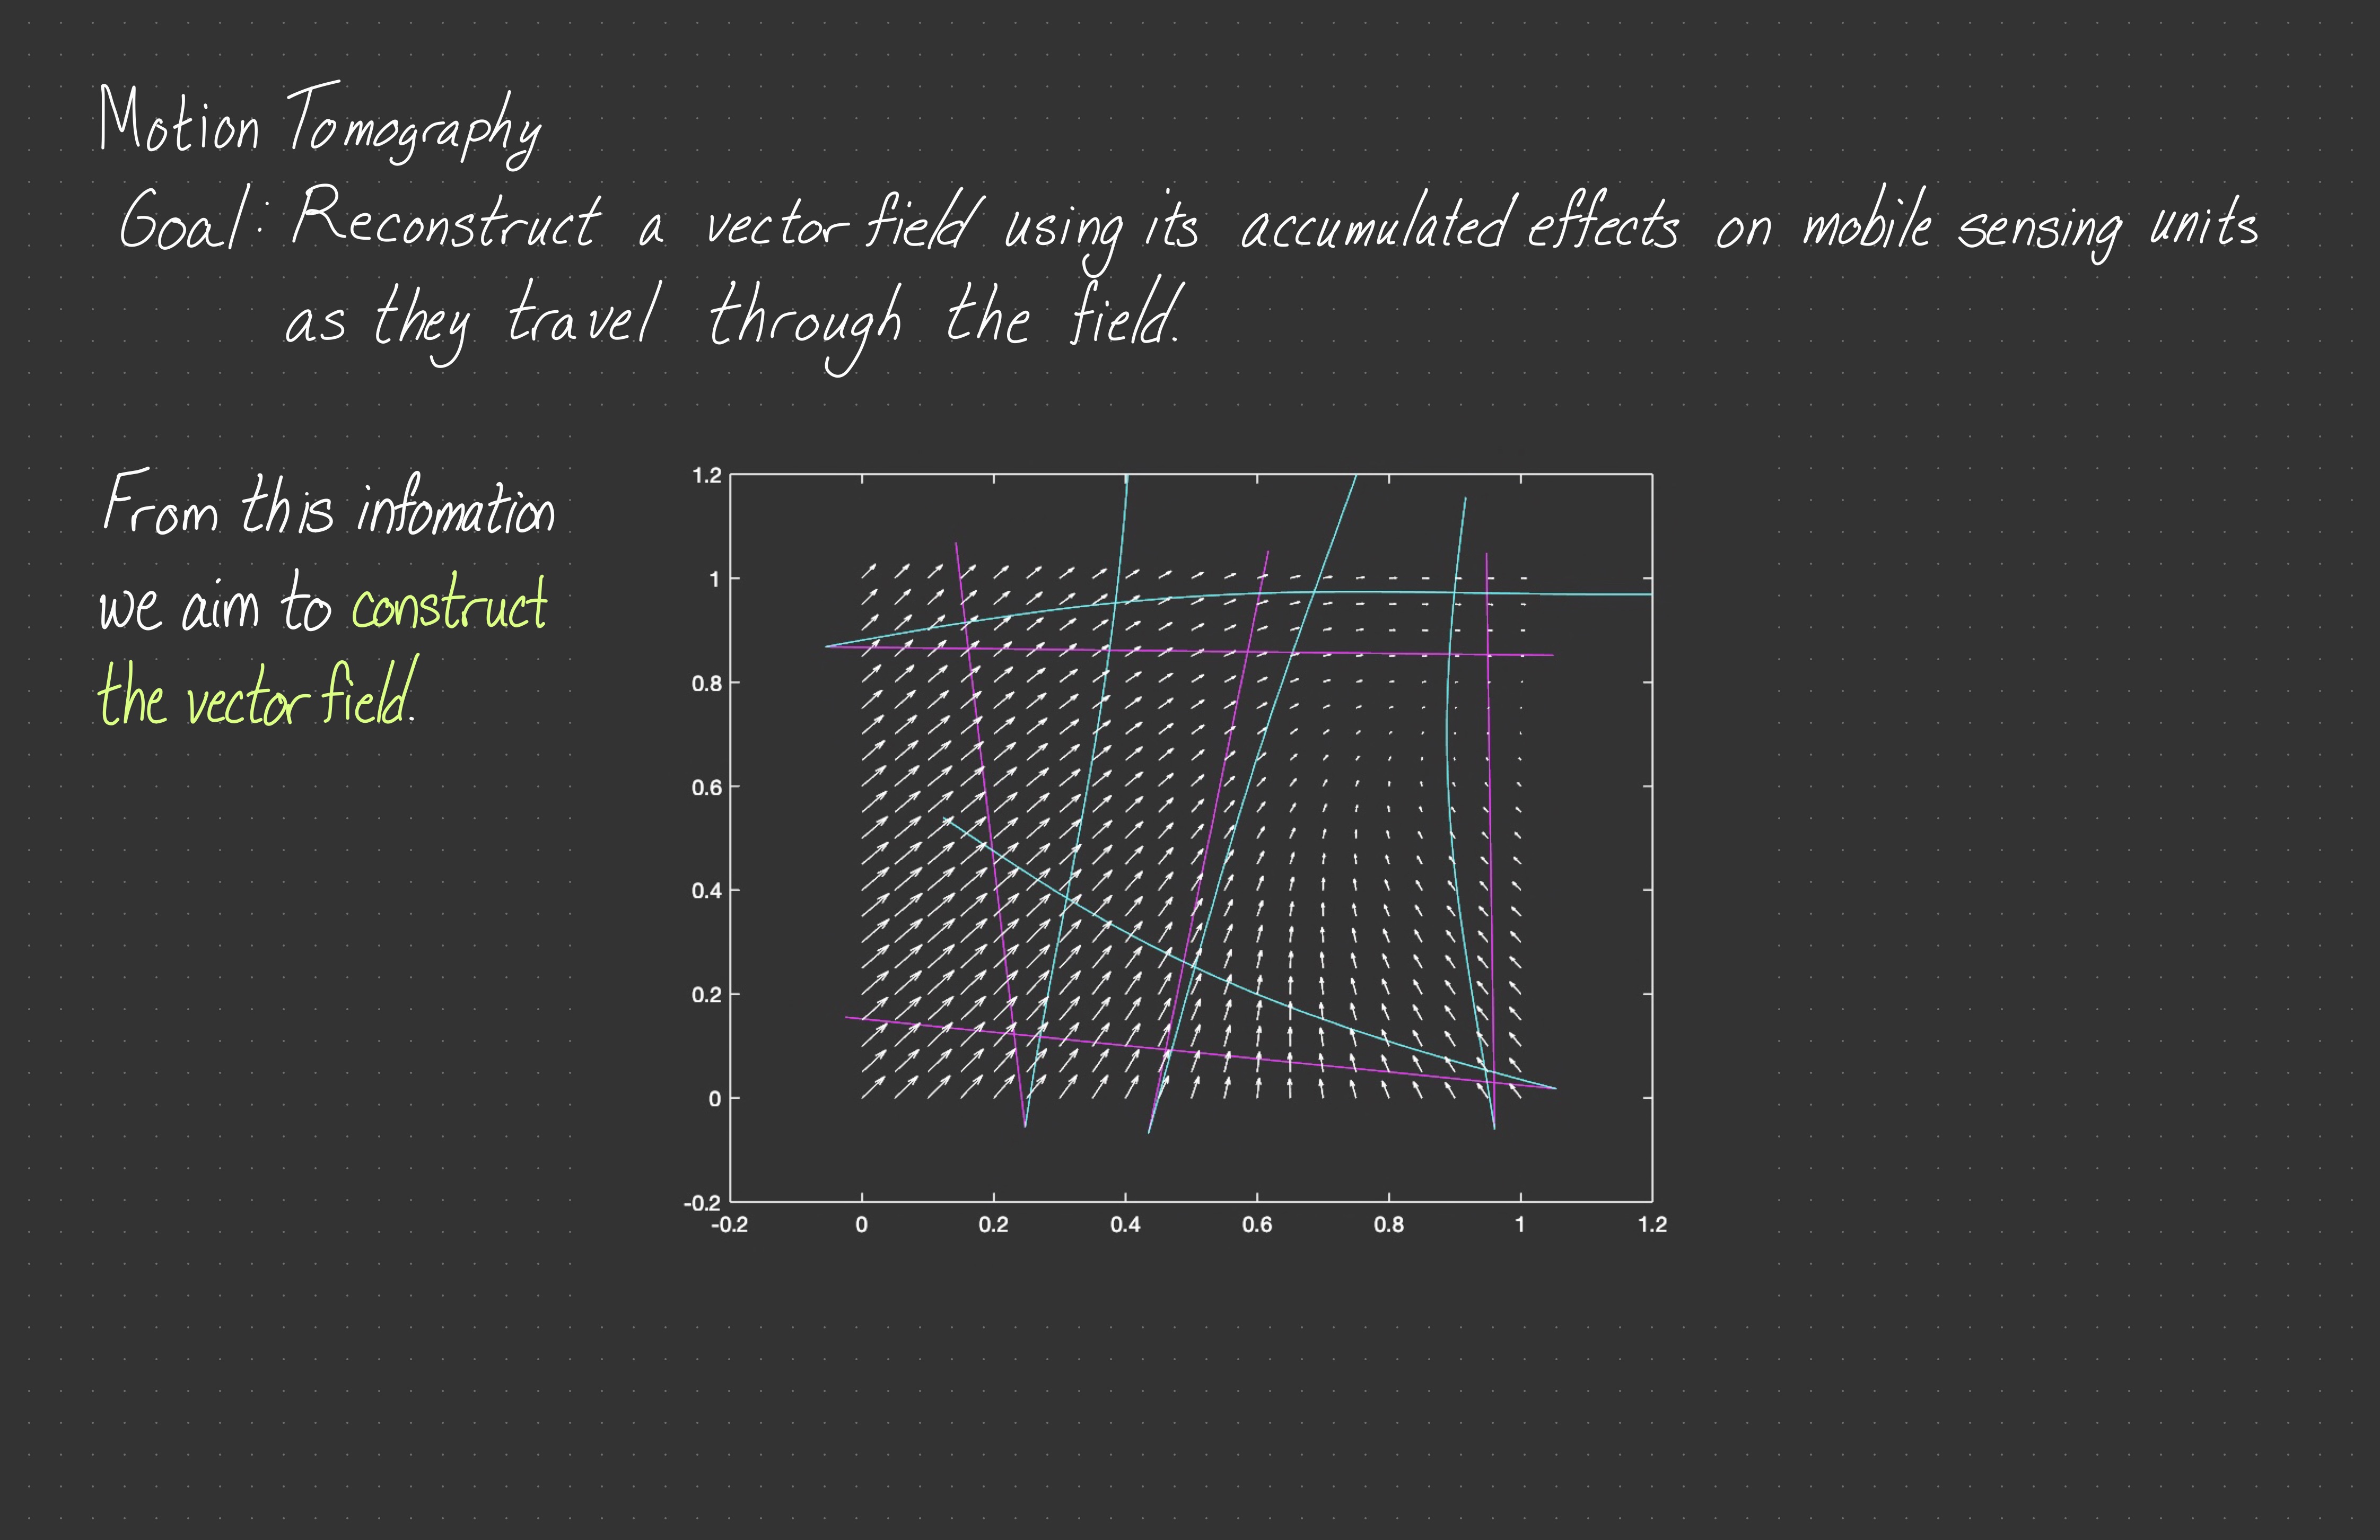 Motion Tomography
Goal: Reconstruct a vector field using its accumulated effects on mobile sensing units
as they travel through the field.
From this infomation
we aim to construct
the vector field.
1.2
1
0.8
0.6
0.4
0.2
0
-0.2
-0.2 0 0.2 0.4 0.6 0.8 1 1.2